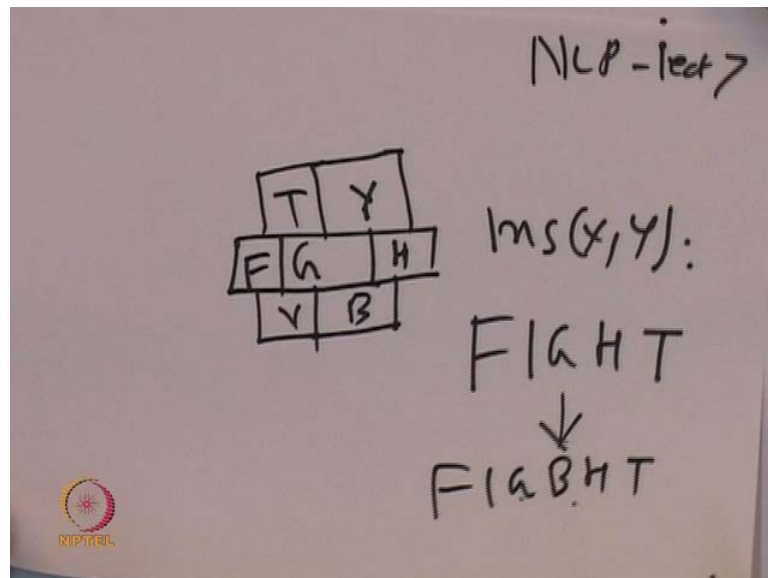 NLP - lect 7
T Y
F G H
V B
ins(X,Y):
FIGHT
FIGBHT
NPTEL